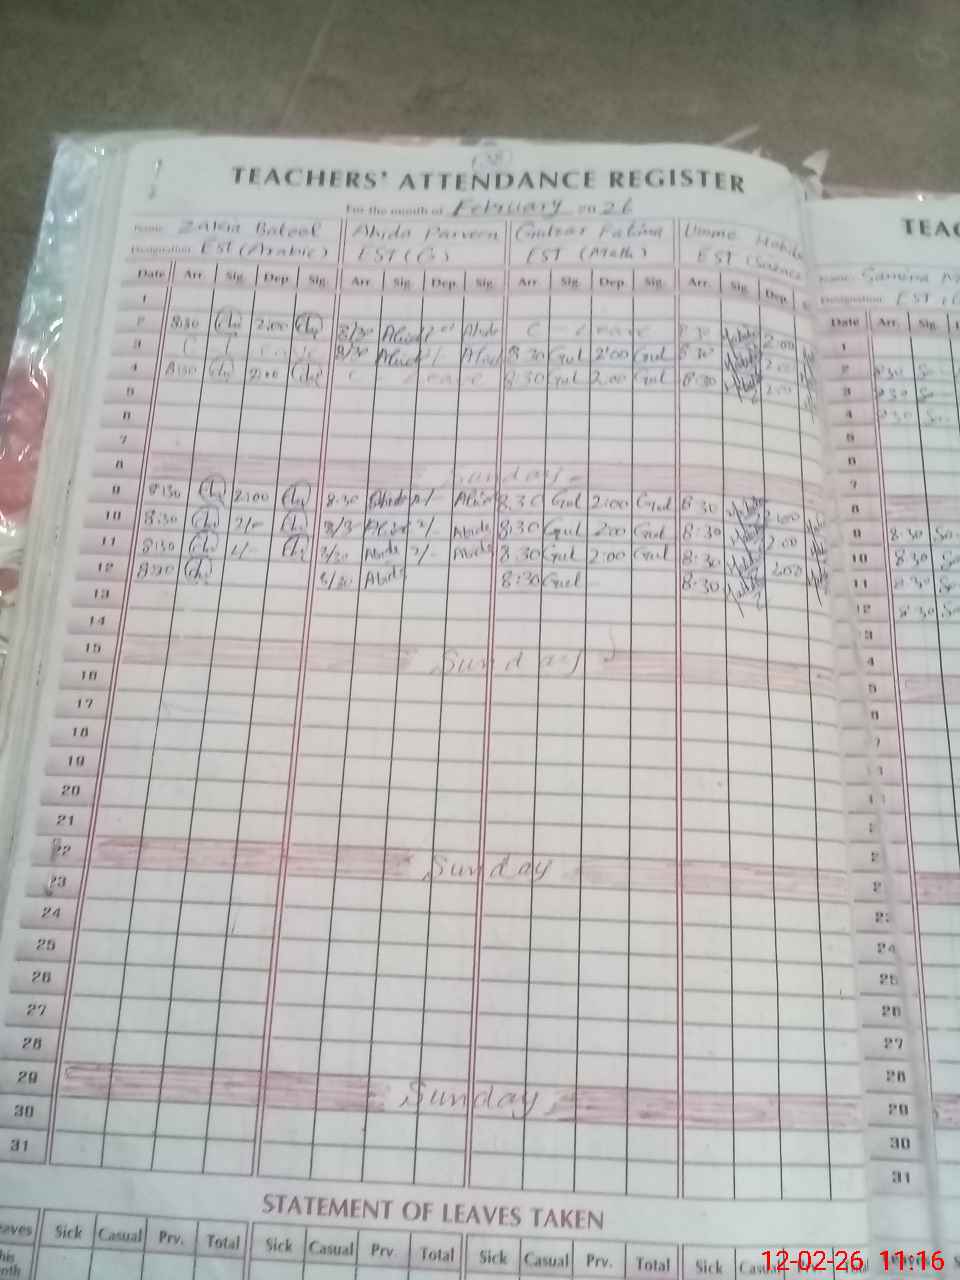 TEACHERS' ATTENDANCE REGISTER
For the month of February 2026
Name Zakia Batool Abida Parveen Gulzar Fatima Umme Habiba
Designation EST (Arabic) EST (G) EST (Math) EST (Science
Date Arr. Sig. Dep. Sig. Arr. Sig. Dep. Sig. Arr. Sig. Dep. Sig. Arr. Sig. Dep.
1
2 8:30 2:00 8/30 Abida Abida C - Leave 8:30 2:00
3 C - Leave 8/30 Abida 2/- Abida 8:30 Gul 2:00 Gul 8:30 2:00
4 8:30 2:00 C - Leave 8:30 Gul 2:00 Gul 8:30 2:00
5
6
7
8 Sunday
9 8:30 2:00 8:30 Abida 2/- Abida 8:30 Gul 2:00 Gul 8:30 2:00
10 8:30 2/- 8/30 Abida 2/- Abida 8:30 Gul 2:00 Gul 8:30 2:00
11 8:30 2/- 8/30 Abida 2/- Abida 8:30 Gul 2:00 Gul 8:30 2:00
12 8:30 8/30 Abida 8:30 Gul 8:30
13
14
15 Sunday
16
17
18
19
20
21
22 Sunday
23
24
25
26
27
28
29 Sunday
30
31
STATEMENT OF LEAVES TAKEN
Sick Casual Prv. Total Sick Casual Prv. Total Sick Casual Prv. Total Sick
TEAC
Name Samina
Designation EST
Date Arr. Sig.
1
2 8:30
3 8:30
4 8:30
5
6
7
8
9 8:30
10 8:30
11 8:30
12 8:30
24
25
26
27
28
29
30
31
12-02-26 11:16